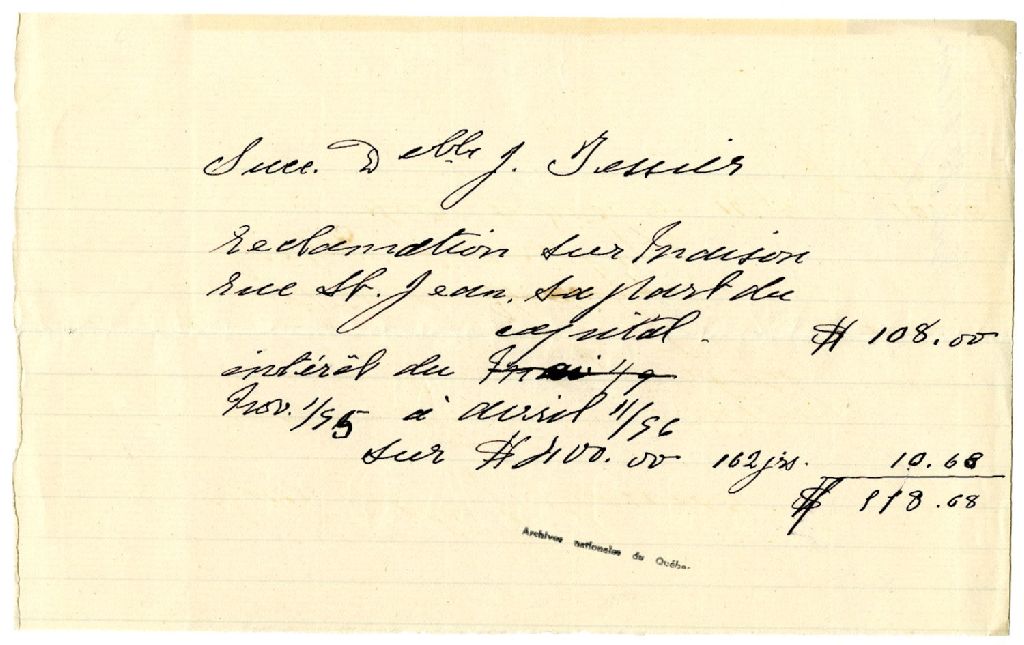 Succ. Delle J. Tessier
reclamation sur maison
rue St. Jean. sa part du
capital. $ 108.00
intérêt du mai 1/9
Nov. 1/95 à avril 11/96
sur $400.00 162 jrs. 10.68
$ 118.68
Archives nationales du Québec